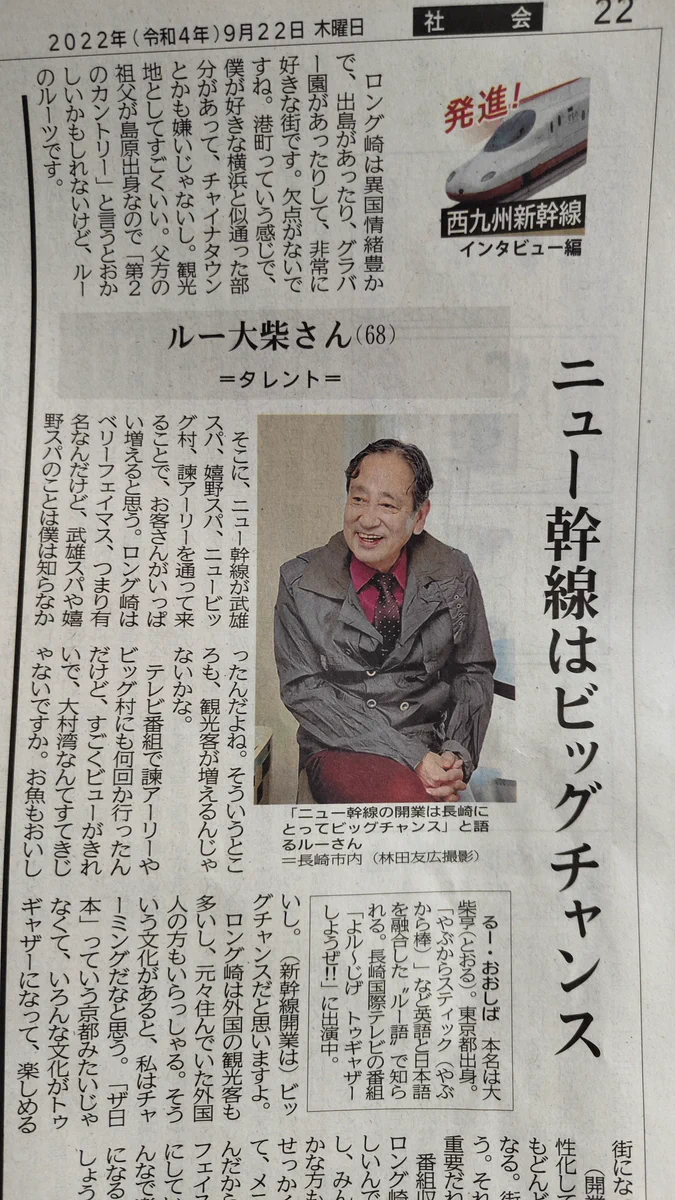 2022年(令和4年)9月22日 木曜日
社会
22
発進!
西九州新幹線
インタビュー編
ニュー幹線はビッグチャンス
ルー大柴さん(68)
=タレント=
ロング崎は異国情緒豊か
で、出島があったり、グラバ
ー園があったりして、非常に
好きな街です。欠点がないで
すね。港町っていう感じで、
僕が好きな横浜と似通った部
分があって、チャイナタウン
とかも嫌いじゃないし。観光
地としてすごくいい。父方の
祖父が島原出身なので「第2
のカントリー」と言うとおか
しいかもしれないけど、ルー
のルーツです。
そこに、ニュー幹線が武雄
スパ、嬉野スパ、ニュービッ
グ村、諫アーリーを通って来
ることで、お客さんがいっぱ
い増えると思う。ロング崎は
ベリーフェイマス、つまり有
名なんだけど、武雄スパや嬉
野スパのことは僕は知らなか
ったんだよね。そういうとこ
ろも、観光客が増えるんじゃ
ないかな。
テレビ番組で諫アーリーや
ビッグ村にも何回か行ったん
だけど、すごくビューがきれ
いで、大村湾なんてすてきじ
ゃないですか。お魚もおいし
いし。(新幹線開業は)ビッ
グチャンスだと思いますよ。
ロング崎は外国の観光客も
多いし、元々住んでいた外国
人の方もいらっしゃる。そう
いう文化があると、私はチャ
ーミングだなと思う。「ザ日
本」っていう京都みたいじゃ
なくて、いろんな文化がトゥ
ギャザーになって、楽しめる
「ニュー幹線の開業は長崎に
とってビッグチャンス」と語
るルーさん
=長崎市内(林田友広撮影)
るー・おおしば 本名は大
柴亨(とおる)。東京都出身。
「やぶからスティック(やぶ
から棒)」など英語と日本語
を融合した〝ルー語〟で知ら
れる。長崎国際テレビの番組
「よル~じげ トゥギャザー
しようぜ!!」に出演中。
街にな
(開業
性化し
もどん
なる。
う。それ
重要だ
番組収
ロング
しいんで
し、みん
かな方も
せっかく
て、メニ
んだから
フェイス
にしてい
んなで
になる
しょう